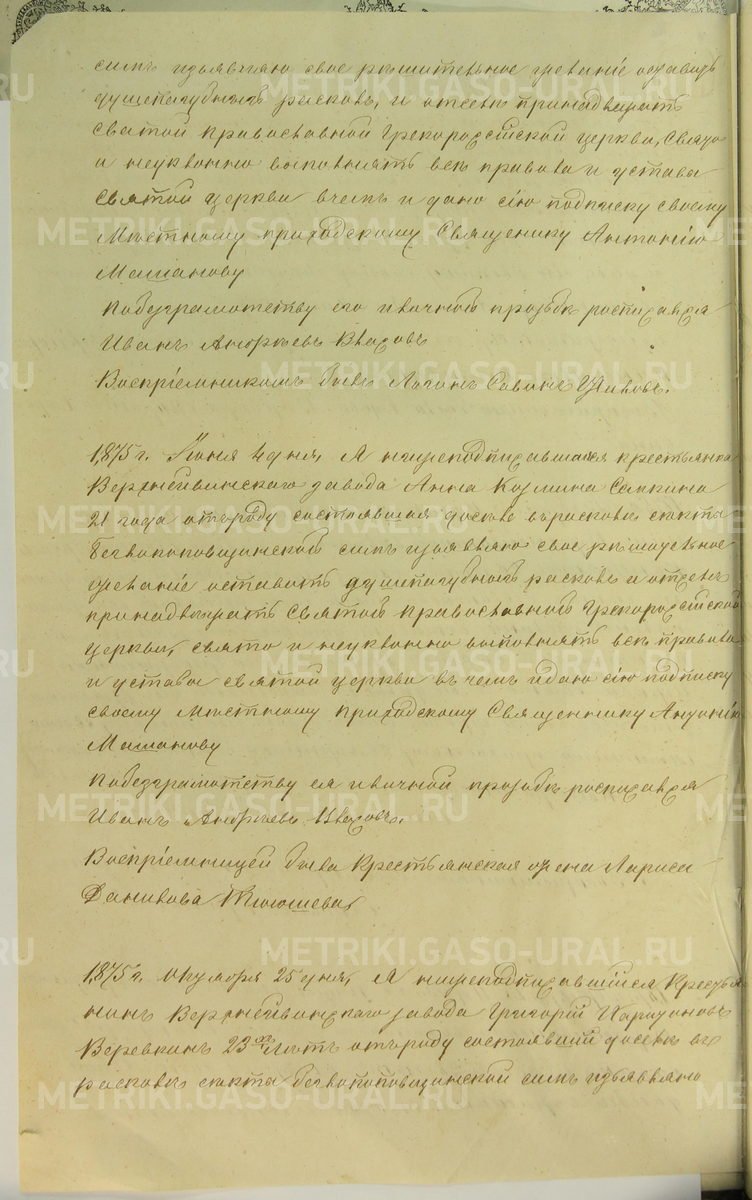 симъ изъявляю свое рѣшительное желаніе оставить
душепагубный расколъ, и отселѣ принадлежать
Святой Православной Грекороссійской церкви, Свято
и неуклонно выполнять всѣ правила и уставы
Святой церкви в чемъ и даю сію подписку своему
Мѣстному приходскому Священику Антонію
Машанову
По безграмотству его и личной прозьбѣ росписался
Иванъ Андрѣевъ
Воспріемникомъ былъ Логинъ Савинъ
1875 г. Іюня 4 дня, Я нижеподписавшаяся крестьянка
Верхнейвинскаго завода Анна Козмина
21 года отъ роду состоявшая доселѣ въ расколѣ секты
безпоповщинской симъ изъявляю свое рѣшительное
желаніе оставить душепагубный расколъ и отселѣ
принадлежать Святой православной Грекороссійской
церкви, свято и неуклонно выполнять всѣ правила
и уставы святой церкви въ чемъ и даю сію подписку
своему Мѣстному приходскому Священнику Антонію
Машанову
По безграмотству ея и личной прозьбѣ росписался
Иванъ Андрѣевъ
Воспріемницей была Крестьянская жена Лариса
Данилова
1875 г. Октября 25 дня, Я нижеподписавшійся Крестья
нинъ Верхнейвинскаго завода Григорій
Веревкинъ 23хъ лѣтъ отъ роду состоявшій доселѣ въ
расколѣ секты безпоповщинской симъ изъявляю
METRIKI.GASO-URAL.RU